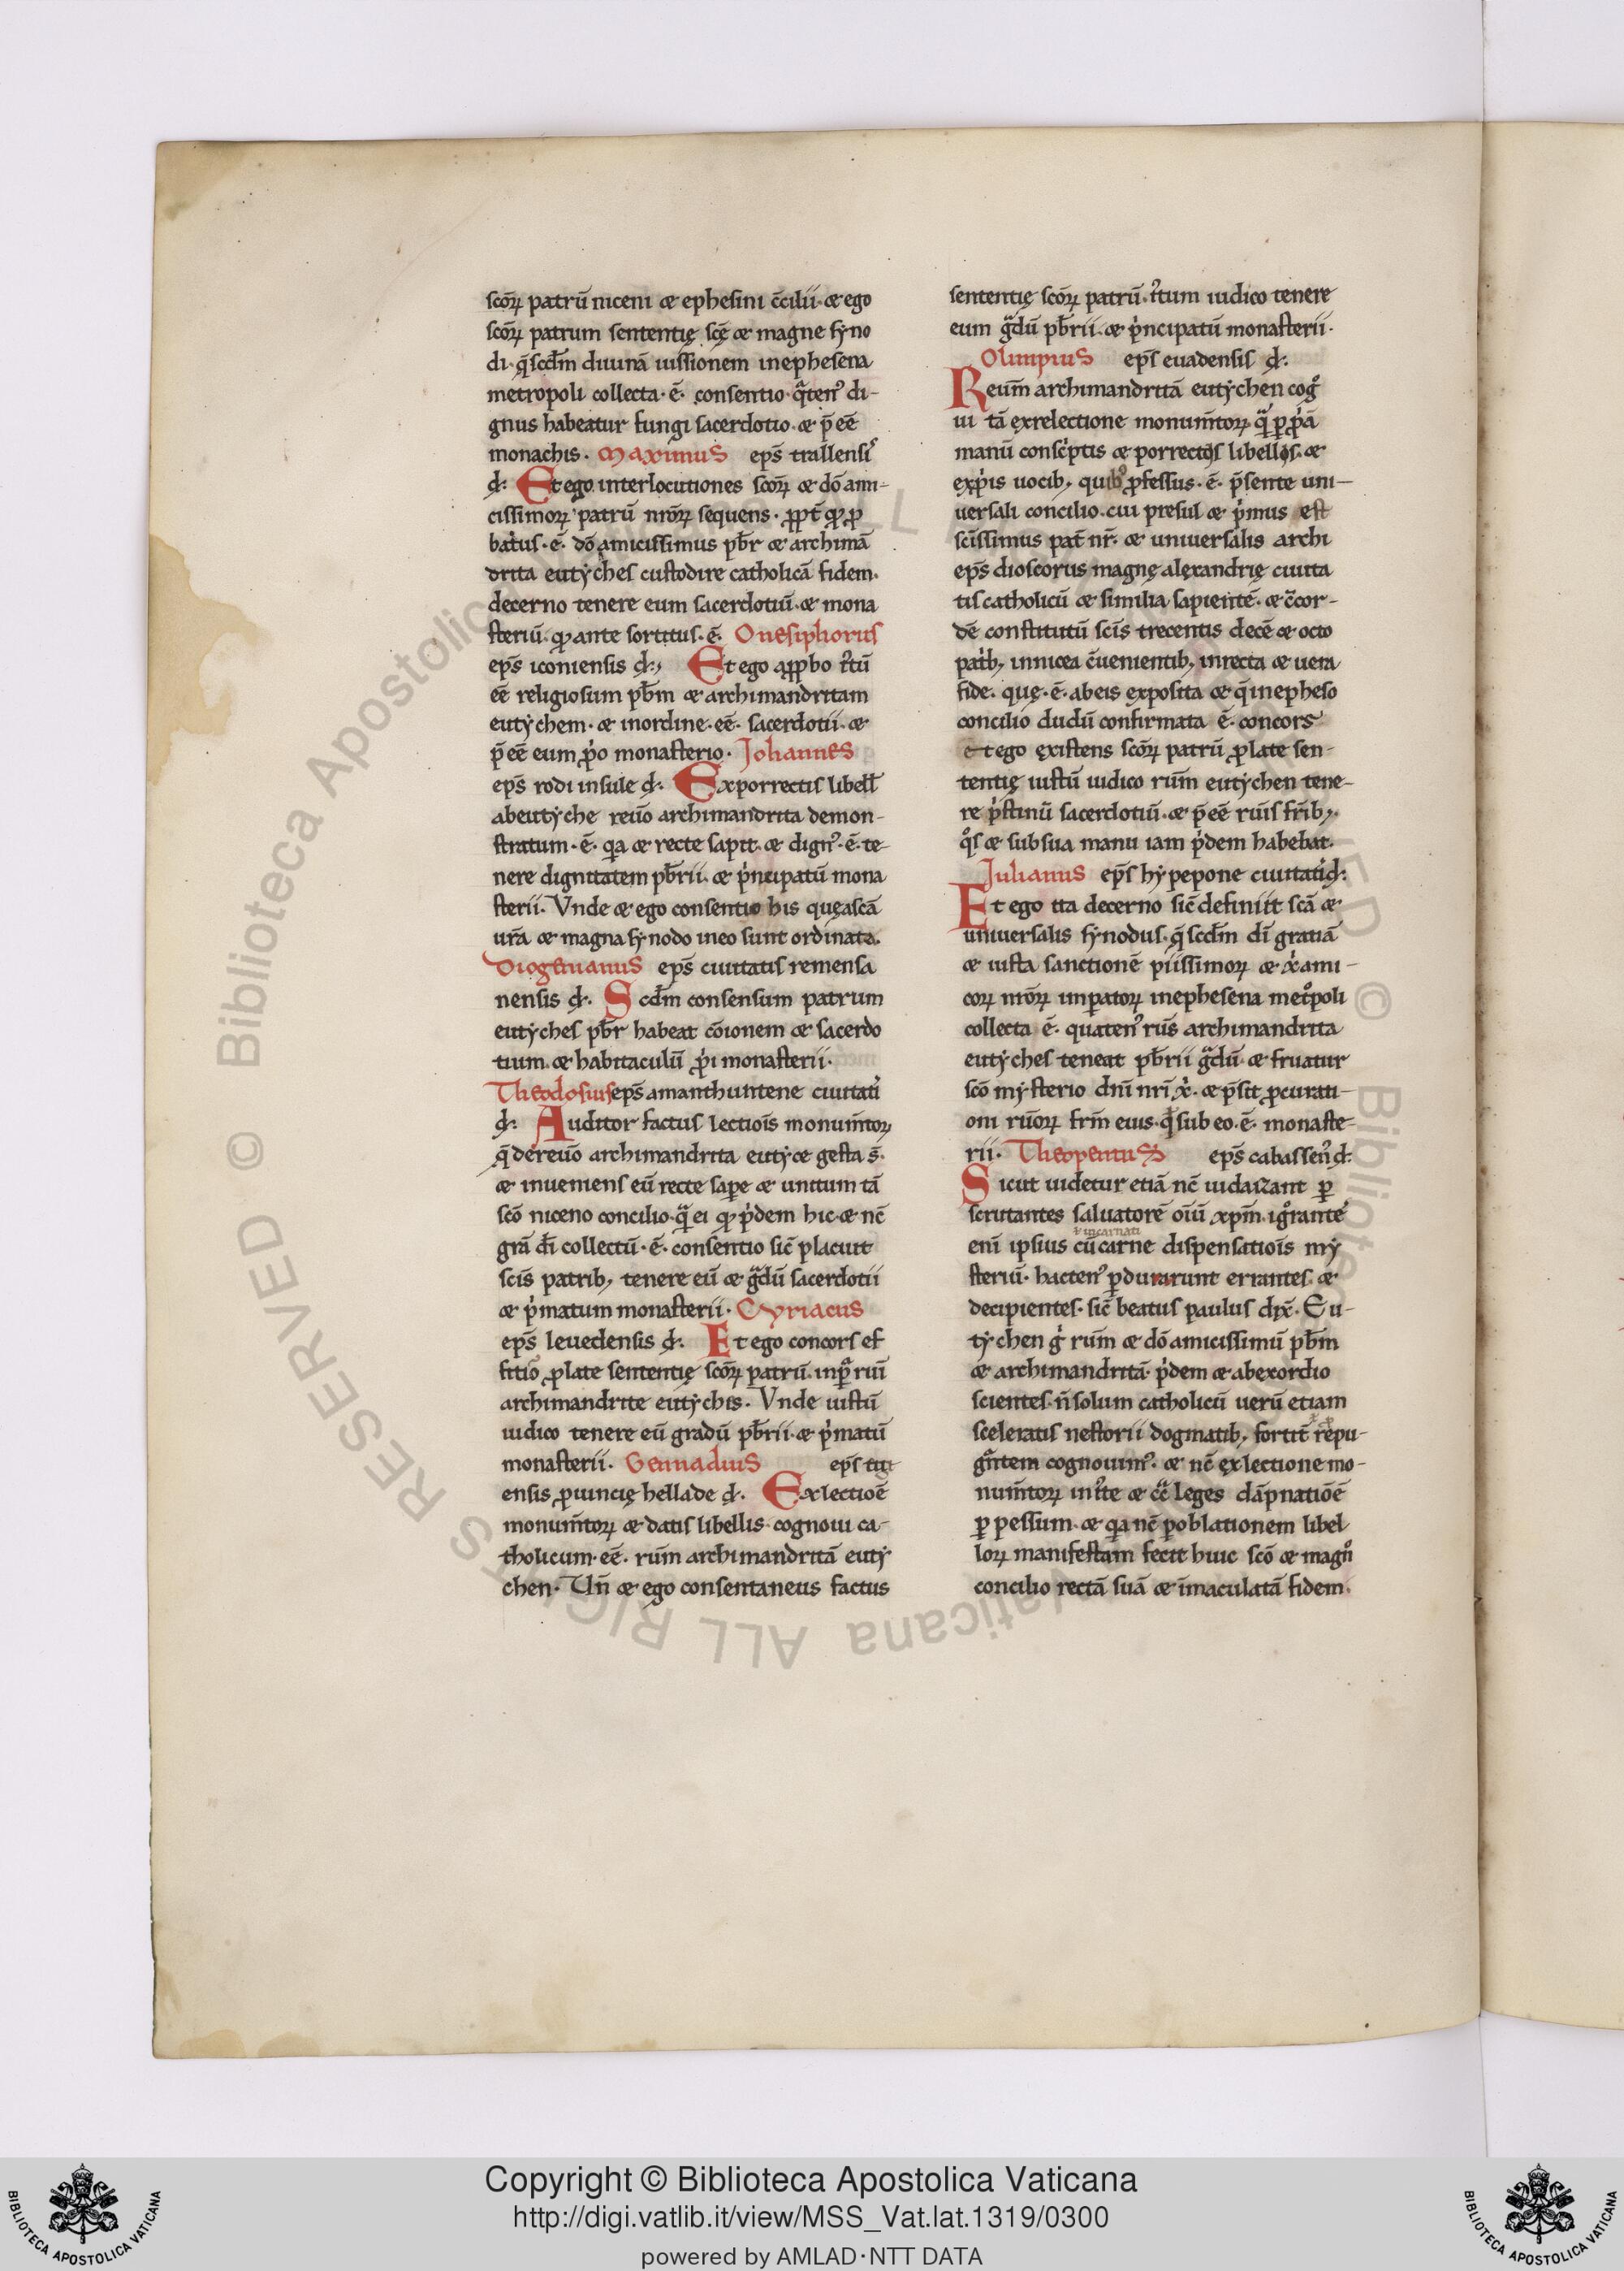 scōꝝ patrū niceni & ephesini ↄ̄cilii· & ego
scōꝝ patrum sententię scē & magne syno
di· q̄ scd̄m diuinā iussionem inephesena
metropoli collecta· ē· consentio· q̄tenꝰ di-
gnus habeatur fungi sacerdotio· & p̄ eē
monachis· Maximus ep̄s trallensiꝰ
đ· Et ego interlocutiones scōꝝ & dō ami-
cissimoꝝ patrū nrōꝝ sequens· ꝓpt̄ ꝙ ꝓ
batus· ē· dō amicissimus pb̄r & archimā
drita eutẏches custodire catholicā fidem·
decerno tenere eum sacerdotiū· & mona
steriū· ꝙ ante sortitus· ē· Onesiphorus
ep̄s iconiensis đ· Et ego aꝓbo it̄tū
eē religiosum pb̄m & archimandritam
eutẏchem· & inordine· eē· sacerdotii· &
p̄ eē eum ꝓ̍o monasterio· Johannes
ep̄s rodi insule đ· Exporrectis libell̄
abeutẏche reuō archimandrita demon-
stratum· ē· qa & recte sapit· & dignꝰ· ē· te-
nere dignitatem pb̄rii· & p̍ncipatū mona
sterii· Vnde & ego consentio his quęascā
ur̄a & magna sẏnodo ineo sunt ordinata·
Diogenianus ep̄s ciuitatis remensa
nensis đ· Scd̄m consensum patrum
eutẏches pb̄r habeat cōionem & sacerdo
tium· & habitaculū ꝓ̍i monasterii·
Theodosius ep̄s amanthuntene ciuitati̍
đ· Auditor factus lectioīs monum̄toꝝ
q̄ dereuō archimandrita eutẏ& gesta s̄·
& inueniens eū recte sapꝑe & unitum tā
scō niceno concilio· q̄ ei ꝙ p̍dem hic· & nē
grā dī collectū· ē· consentio sic̄ placuit
scīs patribꝫ tenere eū & g̃dū sacerdotii
& p̍matum monasterii· Cyriacus
ep̄s leuedensis đ· Et ego concors ef
fitio ꝓlate sententię scōꝝ patrū· inꝑ̃ ruī
archimandrite eutẏchis· Vnde iustū
iudico tenere eū gradū pb̄rii· & p̍matū
monasterii· Gennadius ep̄s tigi
ensis ꝓuincię hellade đ· Exlectioē
monum̄toꝝ & datis libellis· cognoui ca-
tholicum· eē· rūm archimandritā eutẏ
chen· Un̄ & ego consentaneus factus
sententię scōꝝ patrū· it̄tum iudico tenere
eum g̃dū pb̄rii· & p̍ncipatū monasterii·
Olimpius ep̄s euadensis đ·
Reum̄ archimandritā eutẏchen cog̊
ui tā exrelectione monum̄toꝝ q̃ ꝑ ꝓ̍ā
manū consc̍ptis & porrectis libellos· &
exp̍is uocibꝫ quibꝰ ꝓfessus· ē· p̄sente uni-
uersali concilio· cui presul & p̍mus est
scīssimus pat̄ nr̄· & uniuersalis archi
ep̄s dioscorus magnę alexandrię ciuita
tis catholicū & similia sapientē· & ↄ̄cor-
dē constitutū scīs trecentis decē & octo
pat̍bꝫ innicea ↄ̄uenientibꝫ inrecta & uera
fide· quę· ē· abeis exposita & q̄ inepheso
concilio dudū confirmata ē· concors
& ego existens scōꝝ patrū ꝓlate sen-
tentię iustū iudico rūm eutẏchen tene-
re p̍stinū sacerdotiū· & p̄ eē ruīs fr̄ibꝫ·
q̊s & subsua manu iam p̍dem habebat·
Julianus ep̄s hẏpepone ciuitati̍ đ·
Et ego ita decerno sic̄ definiit scā &
uniuersalis sẏnodus· q̄ scd̄m dī gratiā
& iusta sanctionē piissimoꝝ & x̍ami-
coꝝ nrōꝝ inperatoꝝ inephesena met̊poli
collecta ē· quatenꝰ rūs archimandrita
eutẏches teneat pb̄rii g̃dū· & fruatur
scō mẏsterio dn̄i nr̄i x̍· & p̄sit ꝓcurati-
oni ruōꝝ fr̄m eius· q̄ sub eo· ē· monaste-
rii· Theopentus ep̄s cabassen̄ đ·
Sicut uidetur etiā nē iudaizant ꝑ
scrutantes saluatorē oīū xp̄m· ig̊rante
ł incarnati
enī ipsius cū carne dispensatioīs mẏ
steriū· hactenꝰ ꝑdurarunt errantes· &
decipientes· sic̄ beatus paulus dix̄· Eu-
tẏchen g̍ rūm & dō amicissimū pb̄m
& archimandritā· p̍dem & abexordio
scientes· n̄ solum catholicū uerū etiam
sceleratis nestorii dogmatibꝫ fortit̄ repu-
gñtem cognouimꝰ· & nē exlectione mo-
num̄toꝝ inīte & ↄ̄c̄ leges dāpnatiōē
ꝑpessum· & qa nē ꝑoblationem libel
loꝝ manifestam fecit huic scō & magn̊
concilio rectā suā & īmaculatā fidem·
Copyright © Biblioteca Apostolica Vaticana
http://digi.vatlib.it/view/MSS_Vat.lat.1319/0300
powered by AMLAD·NTT DATA
BIBLIOTECA APOSTOLICA VATICANA
BIBLIOTECA APOSTOLICA VATICANA
© Biblioteca Apostolica Vaticana ALL RIGHTS RESERVED